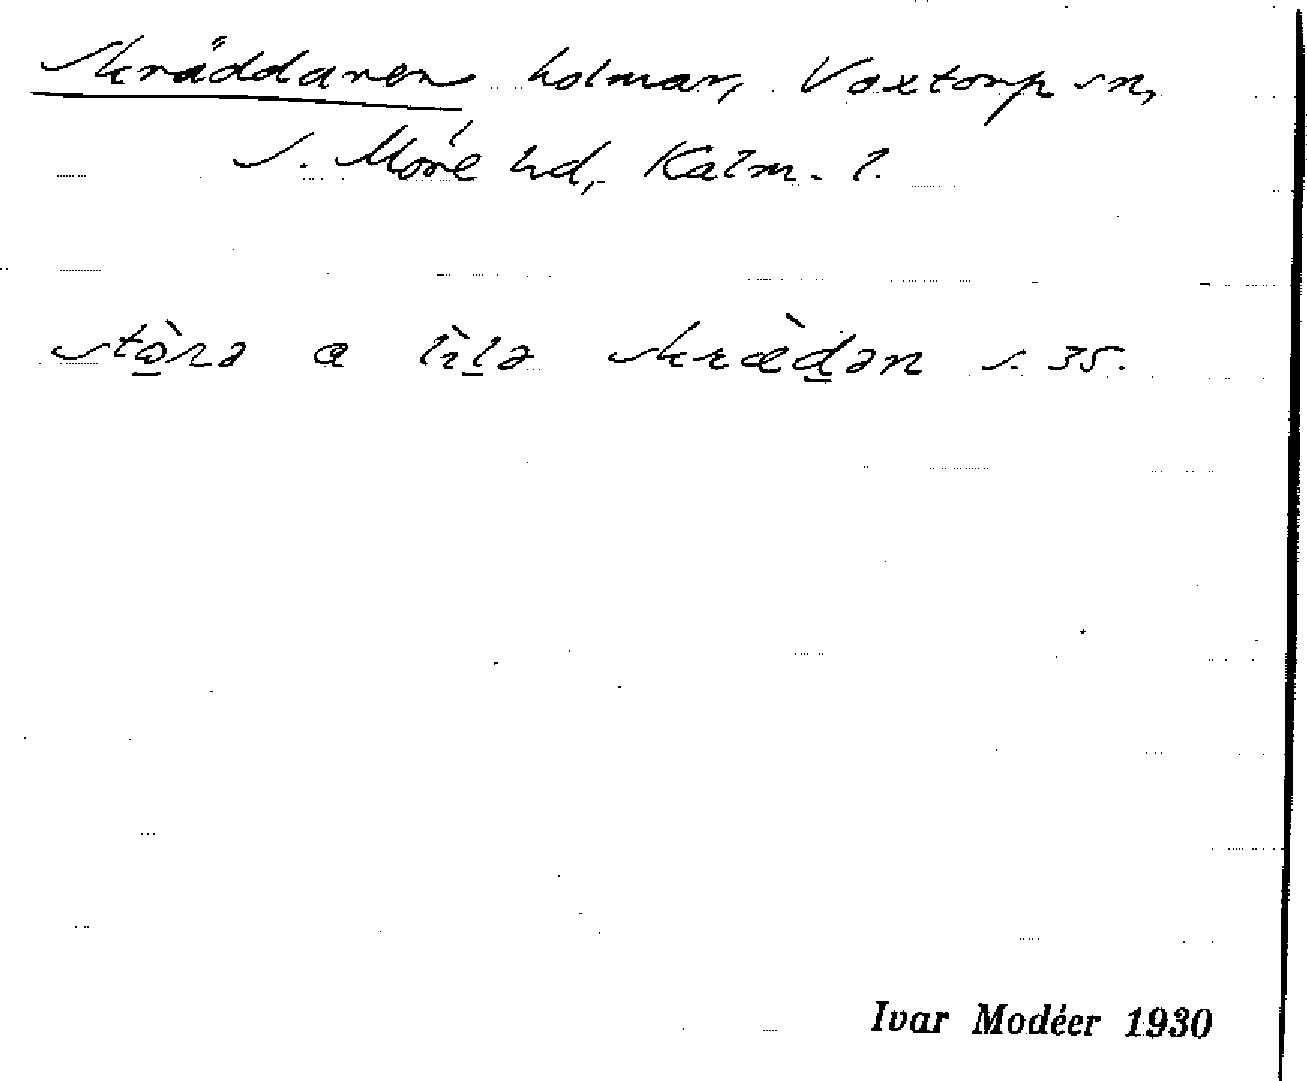 Skräddaren holmar, Voxtorp sn,
S. Möre hd, Kalm. l.
stòra a lìla skræ̀dan s. 35.
Ivar Modéer 1930